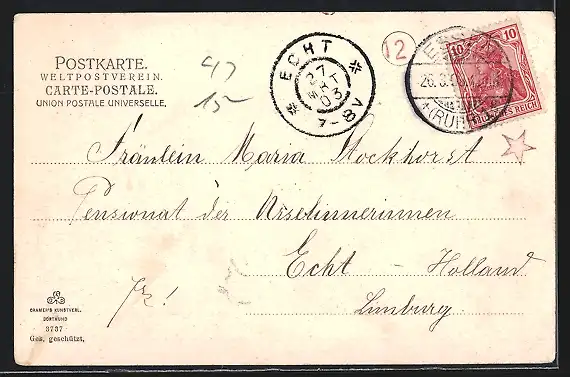 POSTKARTE.
WELTPOSTVEREIN.
CARTE-POSTALE.
UNION POSTALE UNIVERSELLE.
47
15
ECHT
27
MRT
03
7-8V
12
ESSEN
26.3.
(RUHR)
10 10
DEUTSCHES REICH
Fräulein Maria Stockhorst
Pensionat der Urselinnerinnen
Echt - Holland
Limburg
CRAMERS KUNSTVERL.
DORTMUND
3737
Ges. geschützt.